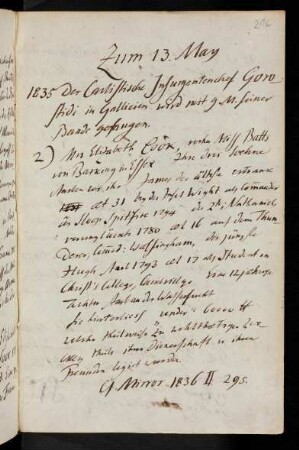 296
Zum 13. May
1835 Der Carlistische Insurgentenchef Goro
stidi in Gallicien wird mit 9 M. seiner
Bande gefangen.
2) Mrs Elizabeth Cook, Miss Batts
von Barking in Essex Ihre drei Soehne
starben vor ihr James der älteste ertrank
at 31 bey der Insel Wight als Comander
der Sloop Spitfire 1794 der 2te Nathaniel
verunglückte 1780 at 16 auf dem Thun
derer, Comod: Walsingham, der jüngste
Hugh starb 1793 at 17 als Student in
Christ's College, Cambridge. 12 jährige
Tochter starb an der Wassersucht
Sie hinterliess 60000 tt
welche theilweise zu wohlthätigen Zwe
cken theils ihrer Dienerschaft u ihren
Freunden legirt wurden.
G Mirror 1836 II 295.